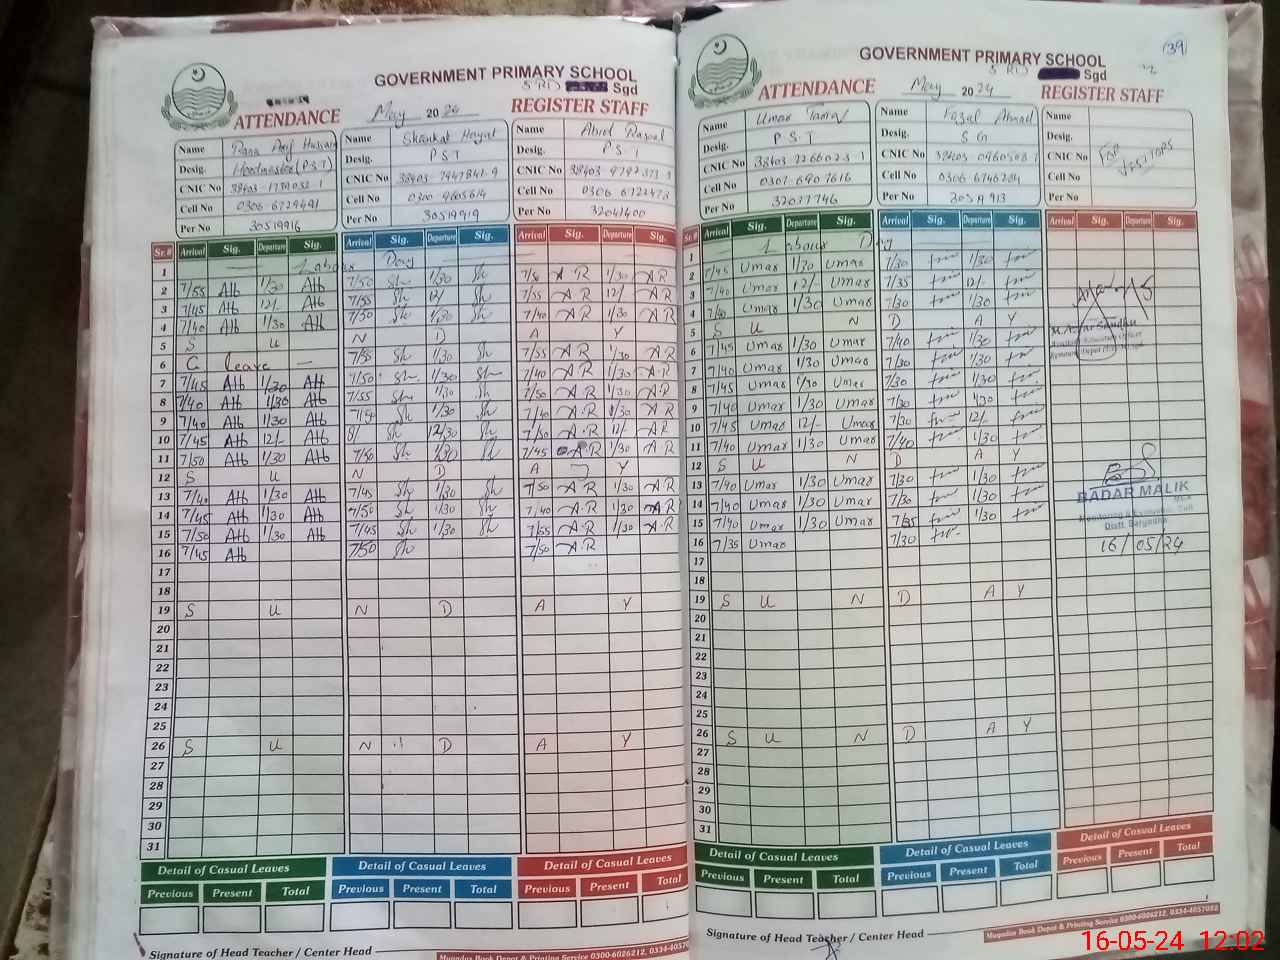 GOVERNMENT PRIMARY SCHOOL
Sgd
ATTENDANCE May 2024 REGISTER STAFF
Name Rana Arif Hussain
Desig. Headmaster (PST)
CNIC No
Cell No 0306 6729491
Per No 30519916
Name Shaukat Hayat
Desig. PST
CNIC No 38403 7447841-9
Cell No 0300 9605614
Per No 30519919
Name Abid Rasool
Desig. PST
CNIC No
Cell No
Per No 32041400
Sr.# Arrival Sig. Departure Sig. Arrival Sig. Departure Sig. Arrival Sig. Departure Sig.
1 Labour Day
2 7/55 Ab 1/30 Ab 7/50 Sh 1/30 Sh 7/50 A.R 1/30 A.R
3 7/45 Ab 12/- Ab 7/55 Sh 12/ Sh 7/55 A.R 12/- A.R
4 7/40 Ab 1/30 Ab 7/50 Sh 1/30 Sh 7/40 A.R 1/30 A.R
5 S U N D A Y
6 C leave — 7/55 Sh 1/30 Sh 7/55 A.R 1/30 A.R
7 7/45 Ab 1/30 Ab 7/50 Sh 1/30 Sh 7/40 A.R 1/30 A.R
8 7/40 Ab 1/30 Ab 7/55 Sh 1/30 Sh 7/50 A.R 1/30 A.R
9 7/40 Ab 1/30 Ab 7/50 Sh 1/30 Sh 7/40 A.R 1/30 A.R
10 7/45 Ab 12/- Ab 8/ Sh 12/30 Sh 7/50 A.R 12/ A.R
11 7/50 Ab 1/30 Ab 7/50 Sh 1/30 Sh 7/45 A.R 1/30 A.R
12 S U N D A Y
13 7/40 Ab 1/30 Ab 7/45 Sh 1/30 Sh 7/50 A.R 1/30 A.R
14 7/45 Ab 1/30 Ab 7/50 Sh 1/30 Sh 7/40 A.R 1/30 A.R
15 7/50 Ab 1/30 Ab 7/45 Sh 1/30 Sh 7/55 A.R 1/30 A.R
16 7/45 Ab 7/50 Sh 7/50 A.R
17
18
19 S U N D A Y
20
21
22
23
24
25
26 S U N D A Y
27
28
29
30
31
Detail of Casual Leaves Detail of Casual Leaves Detail of Casual Leaves
Previous Present Total Previous Present Total Previous Present Total
Signature of Head Teacher / Center Head
Muqadas Book Depot & Printing Service 0300-6026212, 0334-4057
39
GOVERNMENT PRIMARY SCHOOL
Sgd
ATTENDANCE May 2024 REGISTER STAFF
Name Umar
Desig. PST
CNIC No 38403 2266023-1
Cell No 0307 6907616
Per No 32037746
Name Fazal Ahmad
Desig. SG
CNIC No
Cell No 0306 6746284
Per No
Name
Desig.
CNIC No
Cell No
Per No
FOR VISITORS
Sr.# Arrival Sig. Departure Sig. Arrival Sig. Departure Sig. Arrival Sig. Departure Sig.
1 Labour Day
2 7/45 Umar 1/30 Umar 7/30 1/30
3 7/40 Umar 12/- Umar 7/35 12/-
4 7/40 Umar 1/30 Umar 7/30 1/30
5 S U N D A Y
6 7/45 Umar 1/30 Umar 7/40 1/30
7 7/40 Umar 1/30 Umar 7/30 1/30
8 7/45 Umar 1/30 Umar 7/30 1/30
9 7/40 Umar 1/30 Umar 7/30 1/30
10 7/45 Umar 12/- Umar 7/30 12/-
11 7/40 Umar 1/30 Umar 7/40 1/30
12 S U N D A Y
13 7/40 Umar 1/30 Umar 7/30 1/30
14 7/40 Umar 1/30 Umar 7/30 1/30
15 7/40 Umar 1/30 Umar 7/35 1/30
16 7/35 Umar 7/30
BADAR MALIK
Distt. Sargodha
16/05/24
17
18
19 S U N D A Y
20
21
22
23
24
25
26 S U N D A Y
27
28
29
30
31
Detail of Casual Leaves Detail of Casual Leaves Detail of Casual Leaves
Previous Present Total Previous Present Total Previous Present Total
Signature of Head Teacher / Center Head
Muqadas Book Depot & Printing Service 0300-6026212, 0334-4057052
16-05-24 12:02